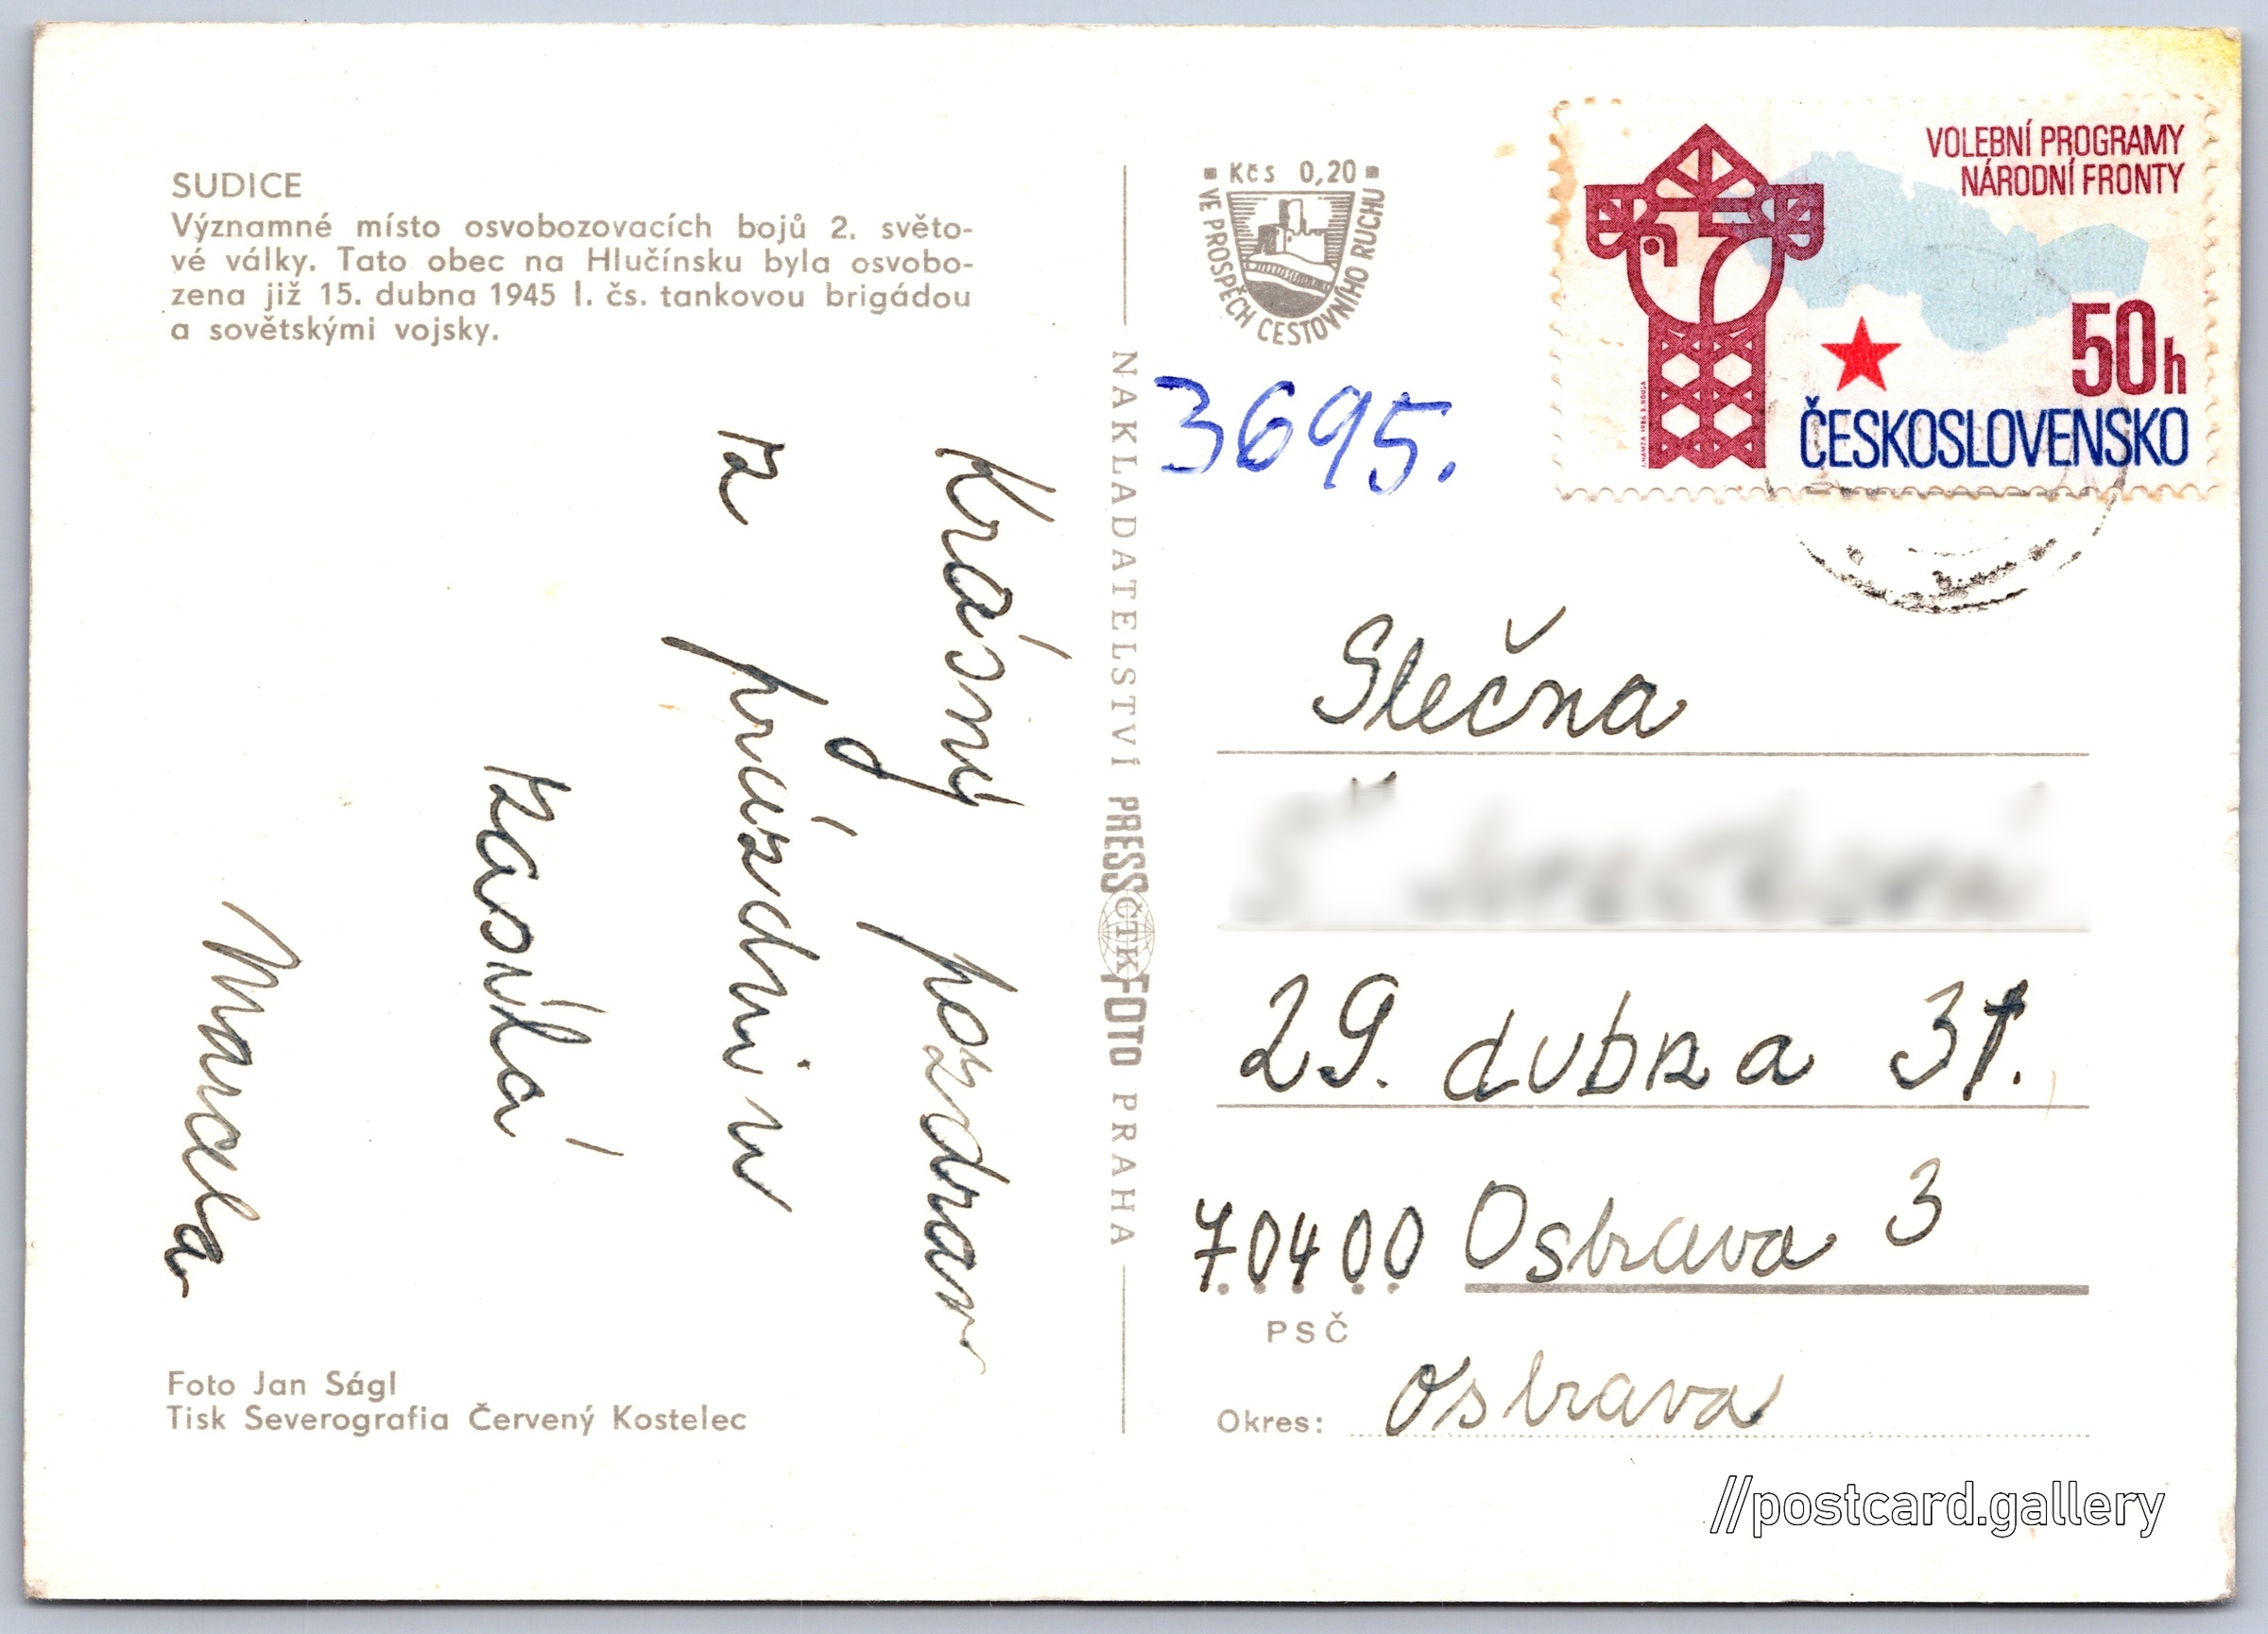 SUDICE
Významné místo osvobozovacích bojů 2. světo-
vé války. Tato obec na Hlučínsku byla osvobo-
zena již 15. dubna 1945 I. čs. tankovou brigádou
a sovětskými vojsky.
Krásný pozdrav
z prázdnin v
zasílá
Marcela
Foto Jan Ságl
Tisk Severografia Červený Kostelec
NAKLADATELSTVÍ PRESSFOTO PRAHA
ČTK
Kčs 0,20
VE PROSPĚCH CESTOVNÍHO RUCHU
3695.
VOLEBNÍ PROGRAMY
NÁRODNÍ FRONTY
50h
ČESKOSLOVENSKO
Slečna
29. dubna 31.
70400 Ostrava 3
PSČ
Okres: Ostrava
//postcard.gallery